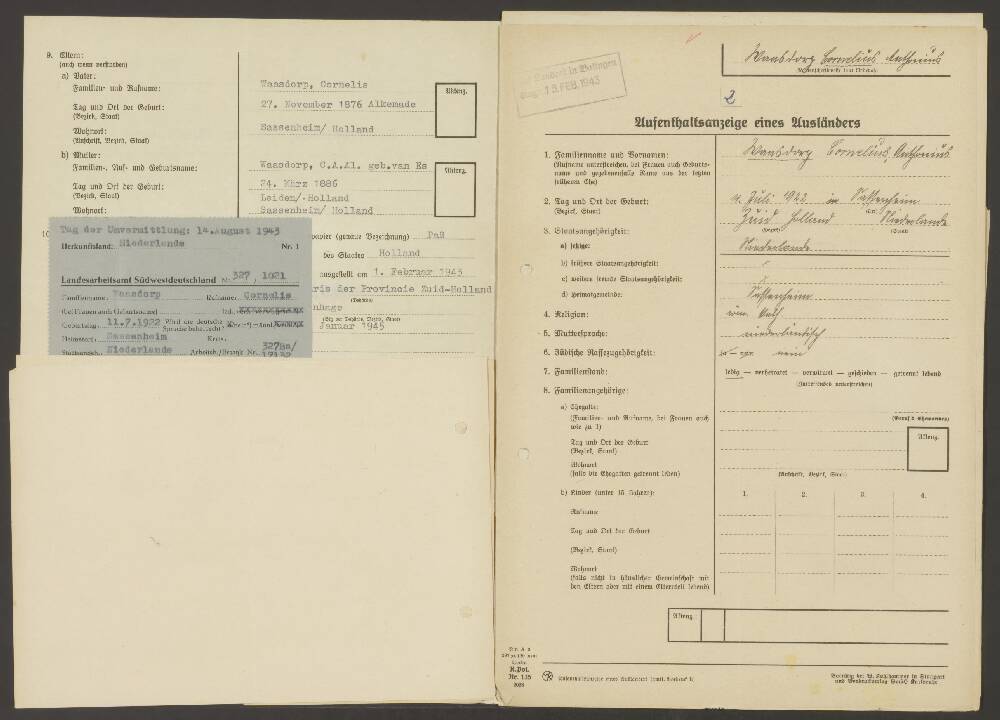 9. Eltern:
(auch wenn verstorben)
a) Vater:
Familien- und Rufname:
Waasdorp, Cornelis
Tag und Ort der Geburt:
(Bezirk, Staat)
27. November 1876 Alkemade
Wohnort:
(Anschrift, Bezirk, Staat)
Sassenheim/ Holland
b) Mutter:
Familien-, Ruf- und Geburtsname:
Waasdorp, C.A.Al. geb.van Es
Tag und Ort der Geburt:
24. März 1886
Leiden/-Holland
Wohnort:
Sassenheim/ Holland
papier (genaue Bezeichnung) Paß
des Staates Holland
ausgestellt am 1. Februar 1943
ris der Provincie Zuid-Holland
Januar 1945
Tag der Unvermittlung: 14.August 1943
Herkunftsland: Niederlande Nr. 1
Landesarbeitsamt Südwestdeutschland Nr. 327 / 1021
Familienname: Waasdorp Rufname: Cornelis
(bei Frauen auch Geburtsname)
Geburtstag: 11.7.1922 Wird die deutsche Sprache beherrscht?
Heimatort: Sassenheim Kreis:
Niederlande
Landrat in Balingen
15. FEB. 1943
Waasdorp Cornelius Anthonius
2
Aufenthaltsanzeige eines Ausländers
1. Familienname und Vornamen:
(Rufname unterstreichen, bei Frauen auch Geburts-
name und gegebenenfalls Name aus der letzten
früheren Ehe)
Waasdorp Cornelius Anthonius
2. Tag und Ort der Geburt:
(Bezirk, Staat)
11. Juli 1922 in Sassenheim
Zuid Holland Niederlande
3. Staatsangehörigkeit:
a) jetzige:
Niederlande
b) frühere Staatsangehörigkeit:
c) weitere fremde Staatsangehörigkeit:
d) Heimatgemeinde:
Sassenheim
4. Religion:
röm. Kath.
5. Muttersprache:
niederländisch
6. Jüdische Rassezugehörigkeit:
nein
7. Familienstand:
ledig — verheiratet — verwitwet — geschieden — getrennt lebend
(Zutreffendes unterstreichen)
8. Familienangehörige:
a) Ehegatte:
(Familien- und Rufname, bei Frauen auch
wie zu 1)
(Beruf d. Ehemannes)
Tag und Ort der Geburt
(Bezirk, Staat)
Wohnort
(falls die Ehegatten getrennt leben)
(Anschrift, Bezirk, Staat)
b) Kinder (unter 15 Jahren):
1. 2. 3. 4.
Rufname
Tag und Ort der Geburt
(Bezirk, Staat)
Wohnort
(falls nicht in häuslicher Gemeinschaft mit
den Eltern oder mit einem Elternteil lebend)
K.Pol.